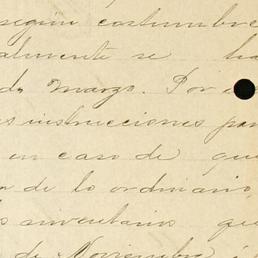 según costumbre
almente se ha
de marzo. Por e
s instrucciones par
en caso de que
de lo ordinario
s inventarios que
de Noviembre i